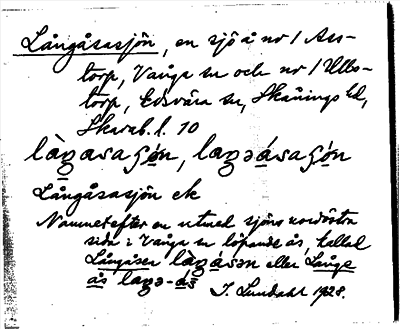 Långåsasjön, en sjö å nr 1 Ass-
torp, Vånga sn och nr 1 Ulbs-
torp, Edsvära sn, Skånings hd,
Skarab. l. 10
làgasaʃón, lagəásaʃón
Långåsasjön ek
Namnet efter en utmed sjöns nordöstra
sida i Vånga sn löpande ås, kallad
Långåsen làgásən eller Långe
ås lagə-ás
J. Lundahl 1928.